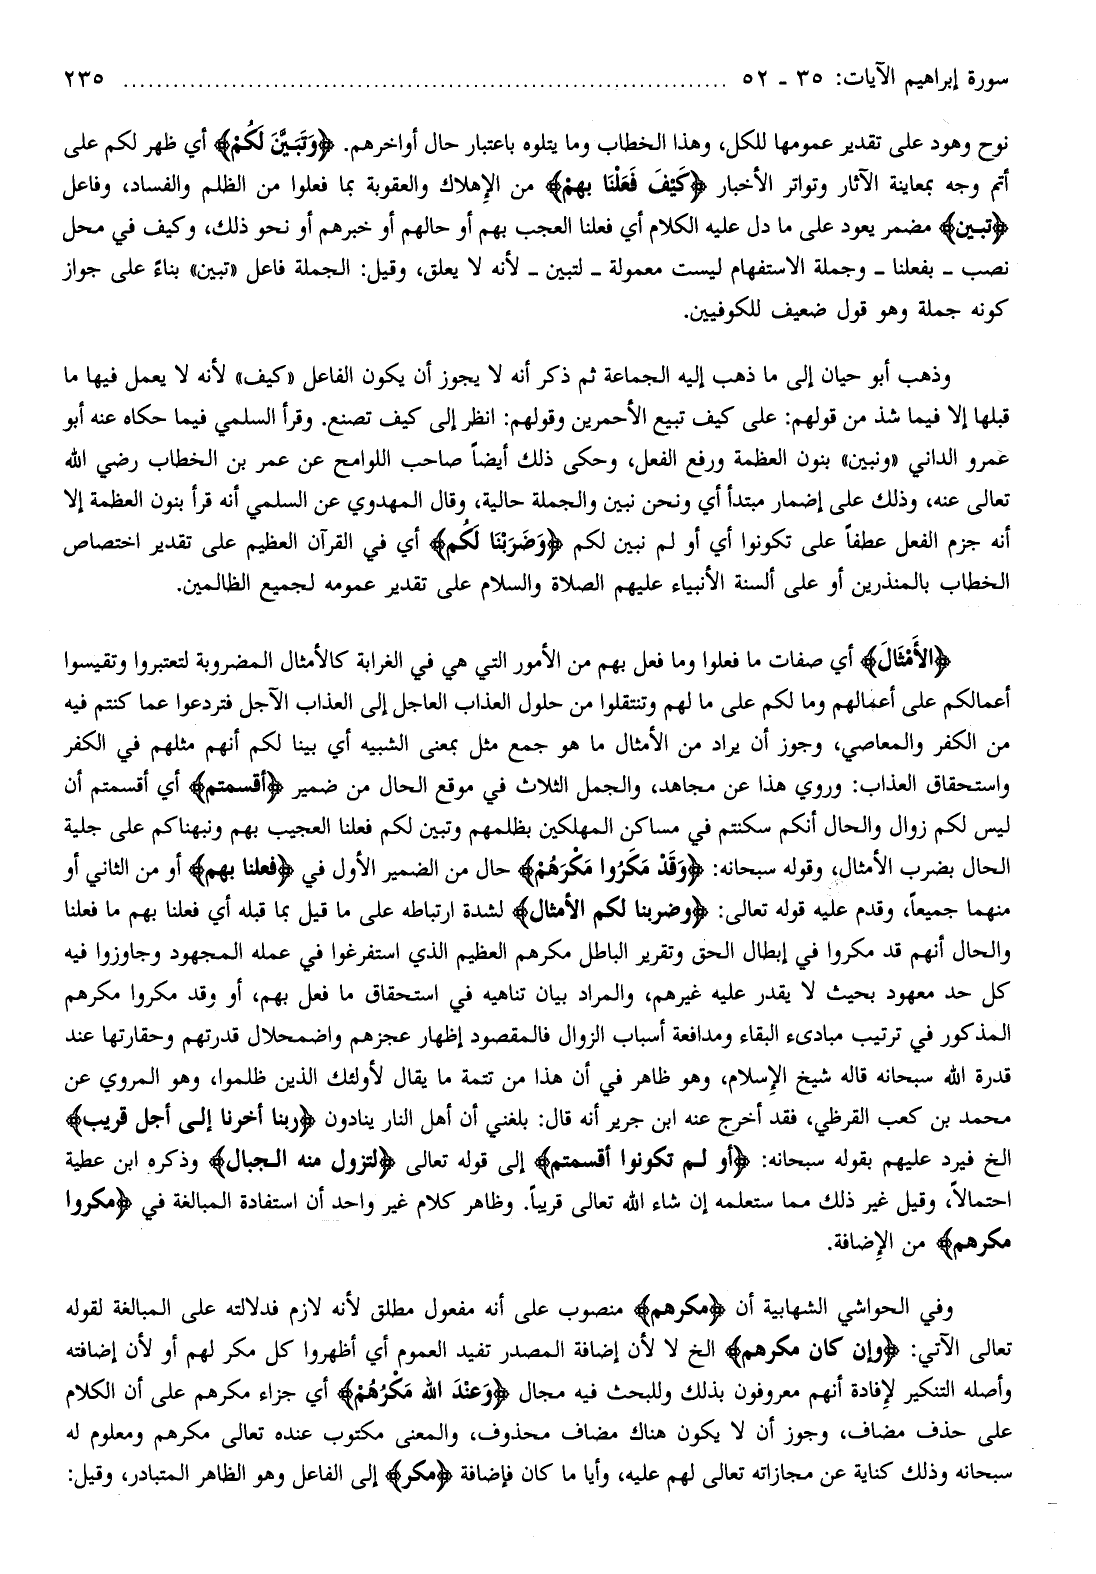 سورة إبراهيم الآيات: ٣٥ ـ ٥٢ ........................................................................ ٢٣٥
نوح وهود على تقدير عمومها للكل، وهذا الخطاب وما يتلوه باعتبار حال أواخرهم. ﴿وَتَبَيَّنَ لَكُمْ﴾ أي ظهر لكم على
أتم وجه بمعاينة الآثار وتواتر الأخبار ﴿كَيْفَ فَعَلْنَا بهمْ﴾ من الإهلاك والعقوبة بما فعلوا من الظلم والفساد، وفاعل
﴿تبين﴾ مضمر يعود على ما دل عليه الكلام أي فعلنا العجب بهم أو حالهم أو خبرهم أو نحو ذلك، وكيف في محل
نصب ـ بفعلنا ـ وجملة الاستفهام ليست معمولة ـ لتبين ـ لأنه لا يعلق، وقيل: الجملة فاعل «تبين» بناءً على جواز
كونه جملة وهو قول ضعيف للكوفيين.
وذهب أبو حيان إلى ما ذهب إليه الجماعة ثم ذكر أنه لا يجوز أن يكون الفاعل «كيف» لأنه لا يعمل فيها ما
قبلها إلا فيما شذ من قولهم: على كيف تبيع الأحمرين وقولهم: انظر إلى كيف تصنع. وقرأ السلمي فيما حكاه عنه أبو
عمرو الداني «ونبين» بنون العظمة ورفع الفعل، وحكى ذلك أيضاً صاحب اللوامح عن عمر بن الخطاب رضي الله
تعالى عنه، وذلك على إضمار مبتدأ أي ونحن نبين والجملة حالية، وقال المهدوي عن السلمي أنه قرأ بنون العظمة إلا
أنه جزم الفعل عطفاً على تكونوا أي أو لم نبين لكم ﴿وَضَرَبْنَا لَكُم﴾ أي في القرآن العظيم على تقدير اختصاص
الخطاب بالمنذرين أو على ألسنة الأنبياء عليهم الصلاة والسلام على تقدير عمومه لجميع الظالمين.
﴿الأَمْثَالَ﴾ أي صفات ما فعلوا وما فعل بهم من الأمور التي هي في الغرابة كالأمثال المضروبة لتعتبروا وتقيسوا
أعمالكم على أعمالهم وما لكم على ما لهم وتنتقلوا من حلول العذاب العاجل إلى العذاب الآجل فتردعوا عما كنتم فيه
من الكفر والمعاصي، وجوز أن يراد من الأمثال ما هو جمع مثل بمعنى الشبيه أي بينا لكم أنهم مثلهم في الكفر
واستحقاق العذاب: وروي هذا عن مجاهد، والجمل الثلاث في موقع الحال من ضمير ﴿أقسمتم﴾ أي أقسمتم أن
ليس لكم زوال والحال أنكم سكنتم في مساكن المهلكين بظلمهم وتبين لكم فعلنا العجيب بهم ونبهناكم على جلية
الحال بضرب الأمثال، وقوله سبحانه: ﴿وَقَدْ مَكَرُوا مَكرَهُمْ﴾ حال من الضمير الأول في ﴿فعلنا بهم﴾ أو من الثاني أو
منهما جميعاً، وقدم عليه قوله تعالى: ﴿وضربنا لكم الأمثال﴾ لشدة ارتباطه على ما قيل بما قبله أي فعلنا بهم ما فعلنا
والحال أنهم قد مكروا في إبطال الحق وتقرير الباطل مكرهم العظيم الذي استفرغوا في عمله المجهود وجاوزوا فيه
كل حد معهود بحيث لا يقدر عليه غيرهم، والمراد بيان تناهيه في استحقاق ما فعل بهم، أو وقد مكروا مكرهم
المذكور في ترتيب مبادىء البقاء ومدافعة أسباب الزوال فالمقصود إظهار عجزهم واضمحلال قدرتهم وحقارتها عند
قدرة الله سبحانه قاله شيخ الإسلام، وهو ظاهر في أن هذا من تتمة ما يقال لأولئك الذين ظلموا، وهو المروي عن
محمد بن كعب القرظي، فقد أخرج عنه ابن جرير أنه قال: بلغني أن أهل النار ينادون ﴿ربنا أخرنا إلى أجل قريب﴾
الخ فيرد عليهم بقوله سبحانه: ﴿أو لم تكونوا أقسمتم﴾ إلى قوله تعالى ﴿لتزول منه الجبال﴾ وذكره ابن عطية
احتمالاً، وقيل غير ذلك مما ستعلمه إن شاء الله تعالى قريباً. وظاهر كلام غير واحد أن استفادة المبالغة في ﴿مكروا
مكرهم﴾ من الإضافة.
وفي الحواشي الشهابية أن ﴿مكرهم﴾ منصوب على أنه مفعول مطلق لأنه لازم فدلالته على المبالغة لقوله
تعالى الآتي: ﴿وإن كان مكرهم﴾ الخ لا لأن إضافة المصدر تفيد العموم أي أظهروا كل مكر لهم أو لأن إضافته
وأصله التنكير لإفادة أنهم معروفون بذلك وللبحث فيه مجال ﴿وَعِنْدَ الله مَكْرُهُمْ﴾ أي جزاء مكرهم على أن الكلام
على حذف مضاف، وجوز أن لا يكون هناك مضاف محذوف، والمعنى مكتوب عنده تعالى مكرهم ومعلوم له
سبحانه وذلك كناية عن مجازاته تعالى لهم عليه، وأيا ما كان فإضافة ﴿مكر﴾ إلى الفاعل وهو الظاهر المتبادر، وقيل: